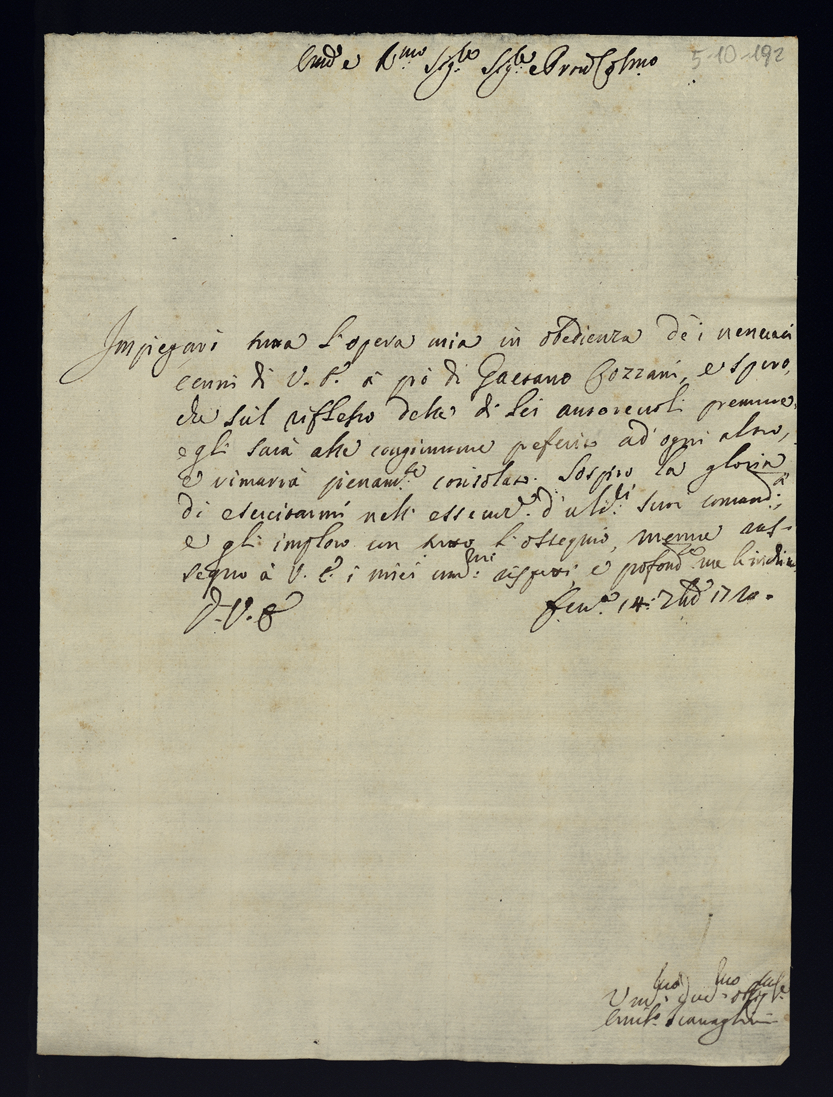 5-10-192
Em.o e R.mo Sig.re Sig.re e Pron Col.mo
Impiegarò tutta l'opera mia in obedienza de i venerati
cenni di V. E. à prò di Gaetano Bozzani, e spero,
che sul riflesso delle di Lei autorevoli premure,
egli sarà alle congiunture preferito ad ogni altro,
e rimarrà pienam.te consolato. Sospiro la gloria
di esercitarmi nell' essecuz.e d' suoi comandi,
e gli imploro con tutto l'ossequio, mentre ras-
segno à V. E. i miei um.mi rispetti, e profond.e me le inchino
D. V. E.
14. 7bre